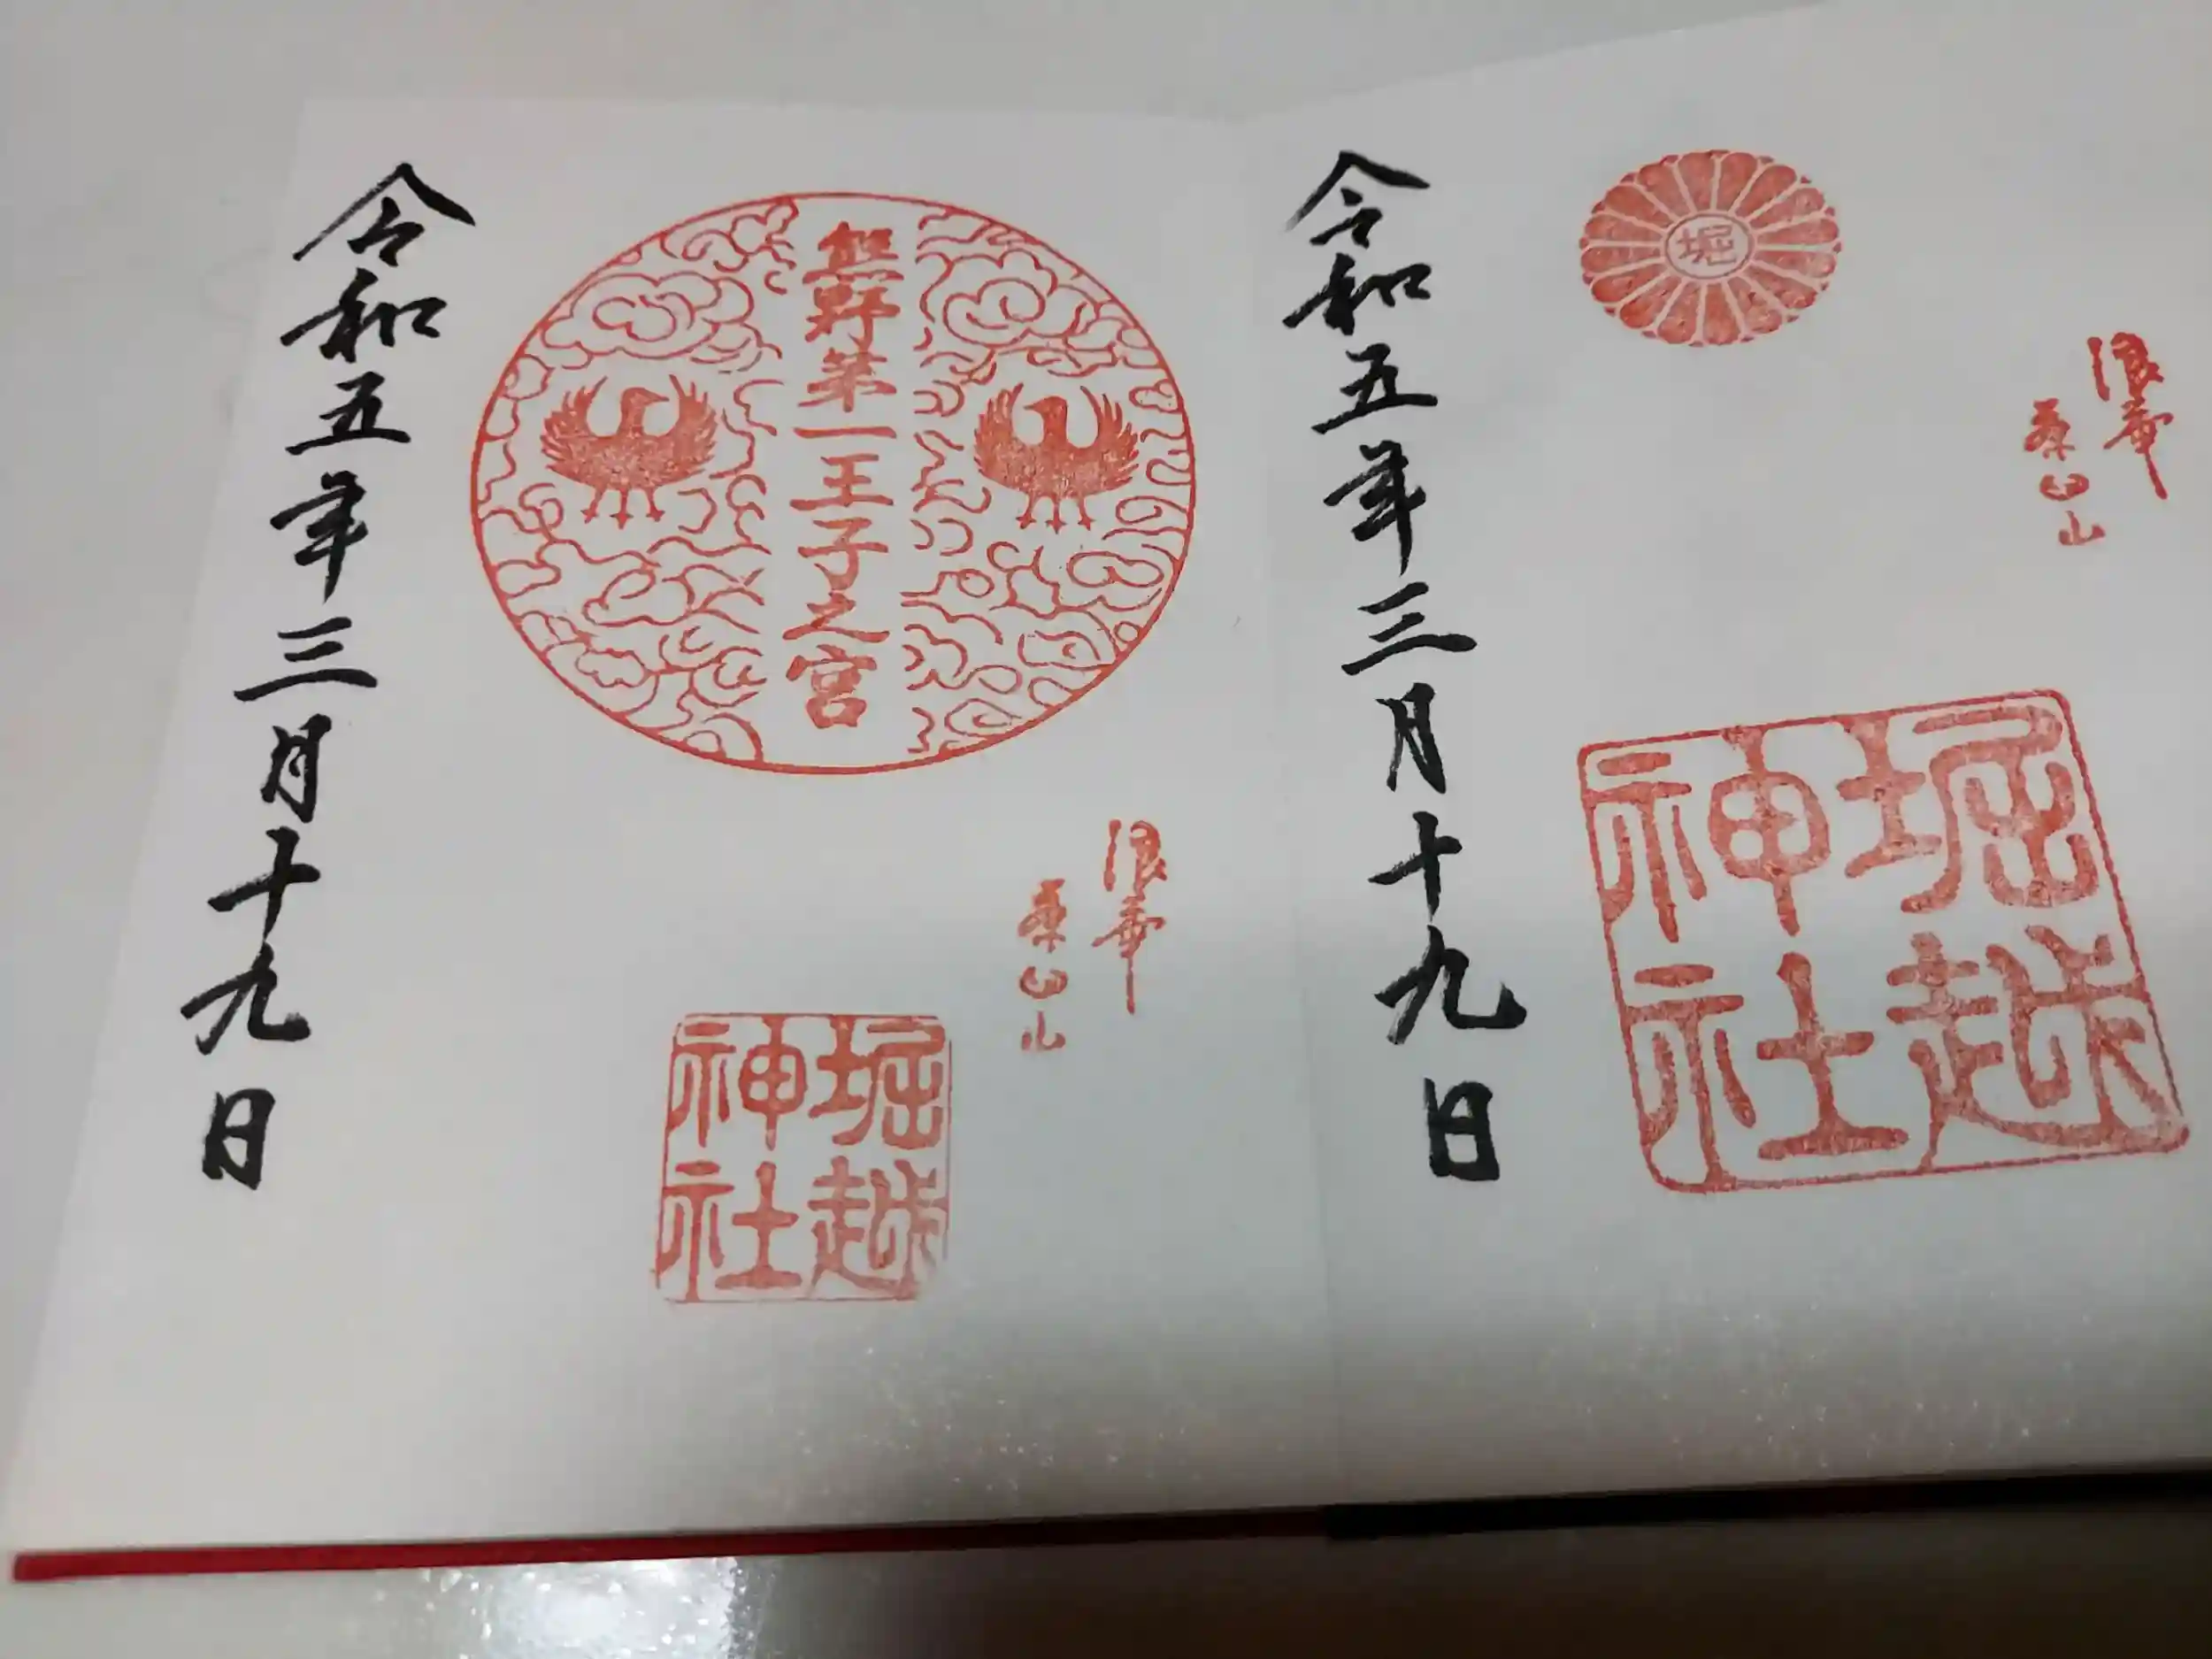 浪華
茶臼山
堀
堀越
神社
令和五年三月十九日
浪華
茶臼山
熊野第一王子之宮
堀越
神社
令和五年三月十九日